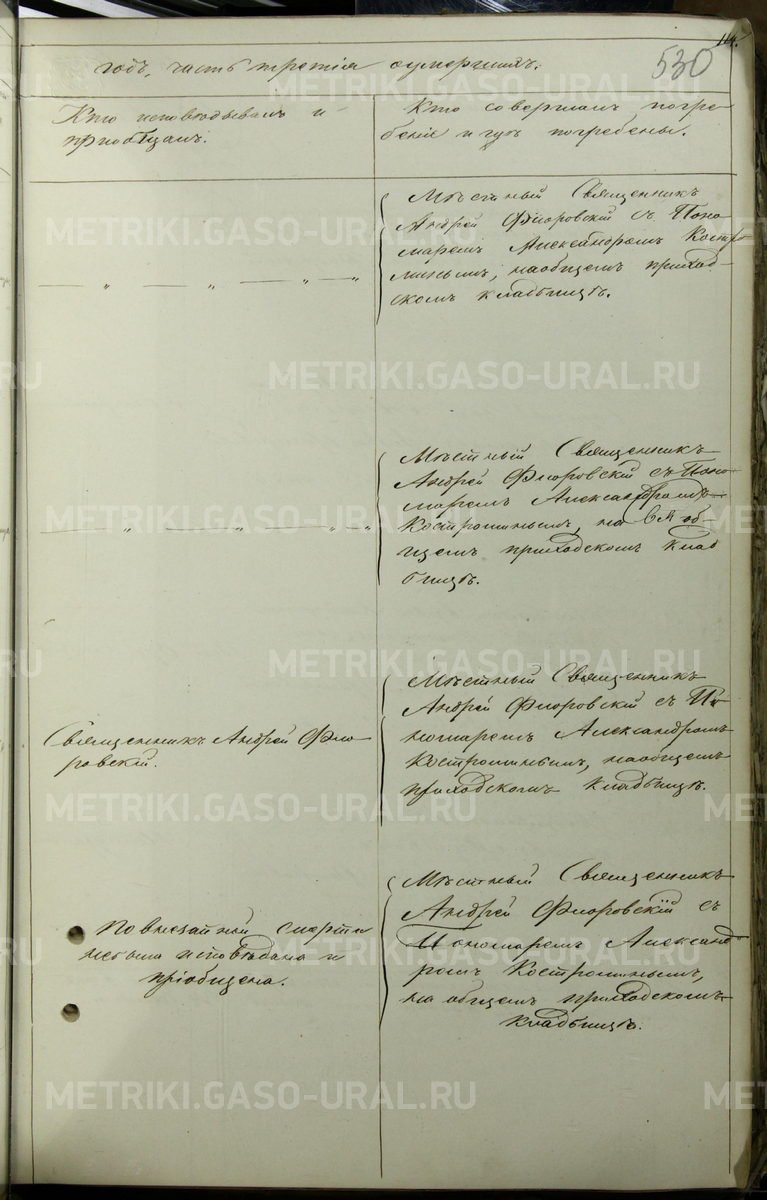 114.
530
годъ, часть третія оумершихъ.
Кто исповѣдывалъ и
пріобщалъ.
Кто совершалъ погре-
беніе и гдѣ погребены.
Мѣстный Священникъ
Андрей Флоровскій съ Поно-
маремъ Александромъ Костро-
минымъ, на общемъ приход-
скомъ кладбищѣ.
— „ — „ — „ — „
Мѣстный Священникъ
Андрей Флоровскій съ Поно-
маремъ Александромъ
Костроминымъ, на об-
щемъ приходскомъ клад
бищѣ.
— „ — „ — „ „
Священникъ Андрей Фло-
ровскій.
Мѣстный Священникъ
Андрей Флоровскій съ По-
номаремъ Александромъ
Костроминымъ, на общемъ
приходскомъ кладбищѣ.
По внезапной смерти
не была исповѣдана и
пріобщена.
Мѣстный Священникъ
Андрей Флоровскій съ
Пономаремъ Александ
ромъ Костроминымъ,
на общемъ приходскомъ
кладбищѣ.
METRIKI.GASO-URAL.RU